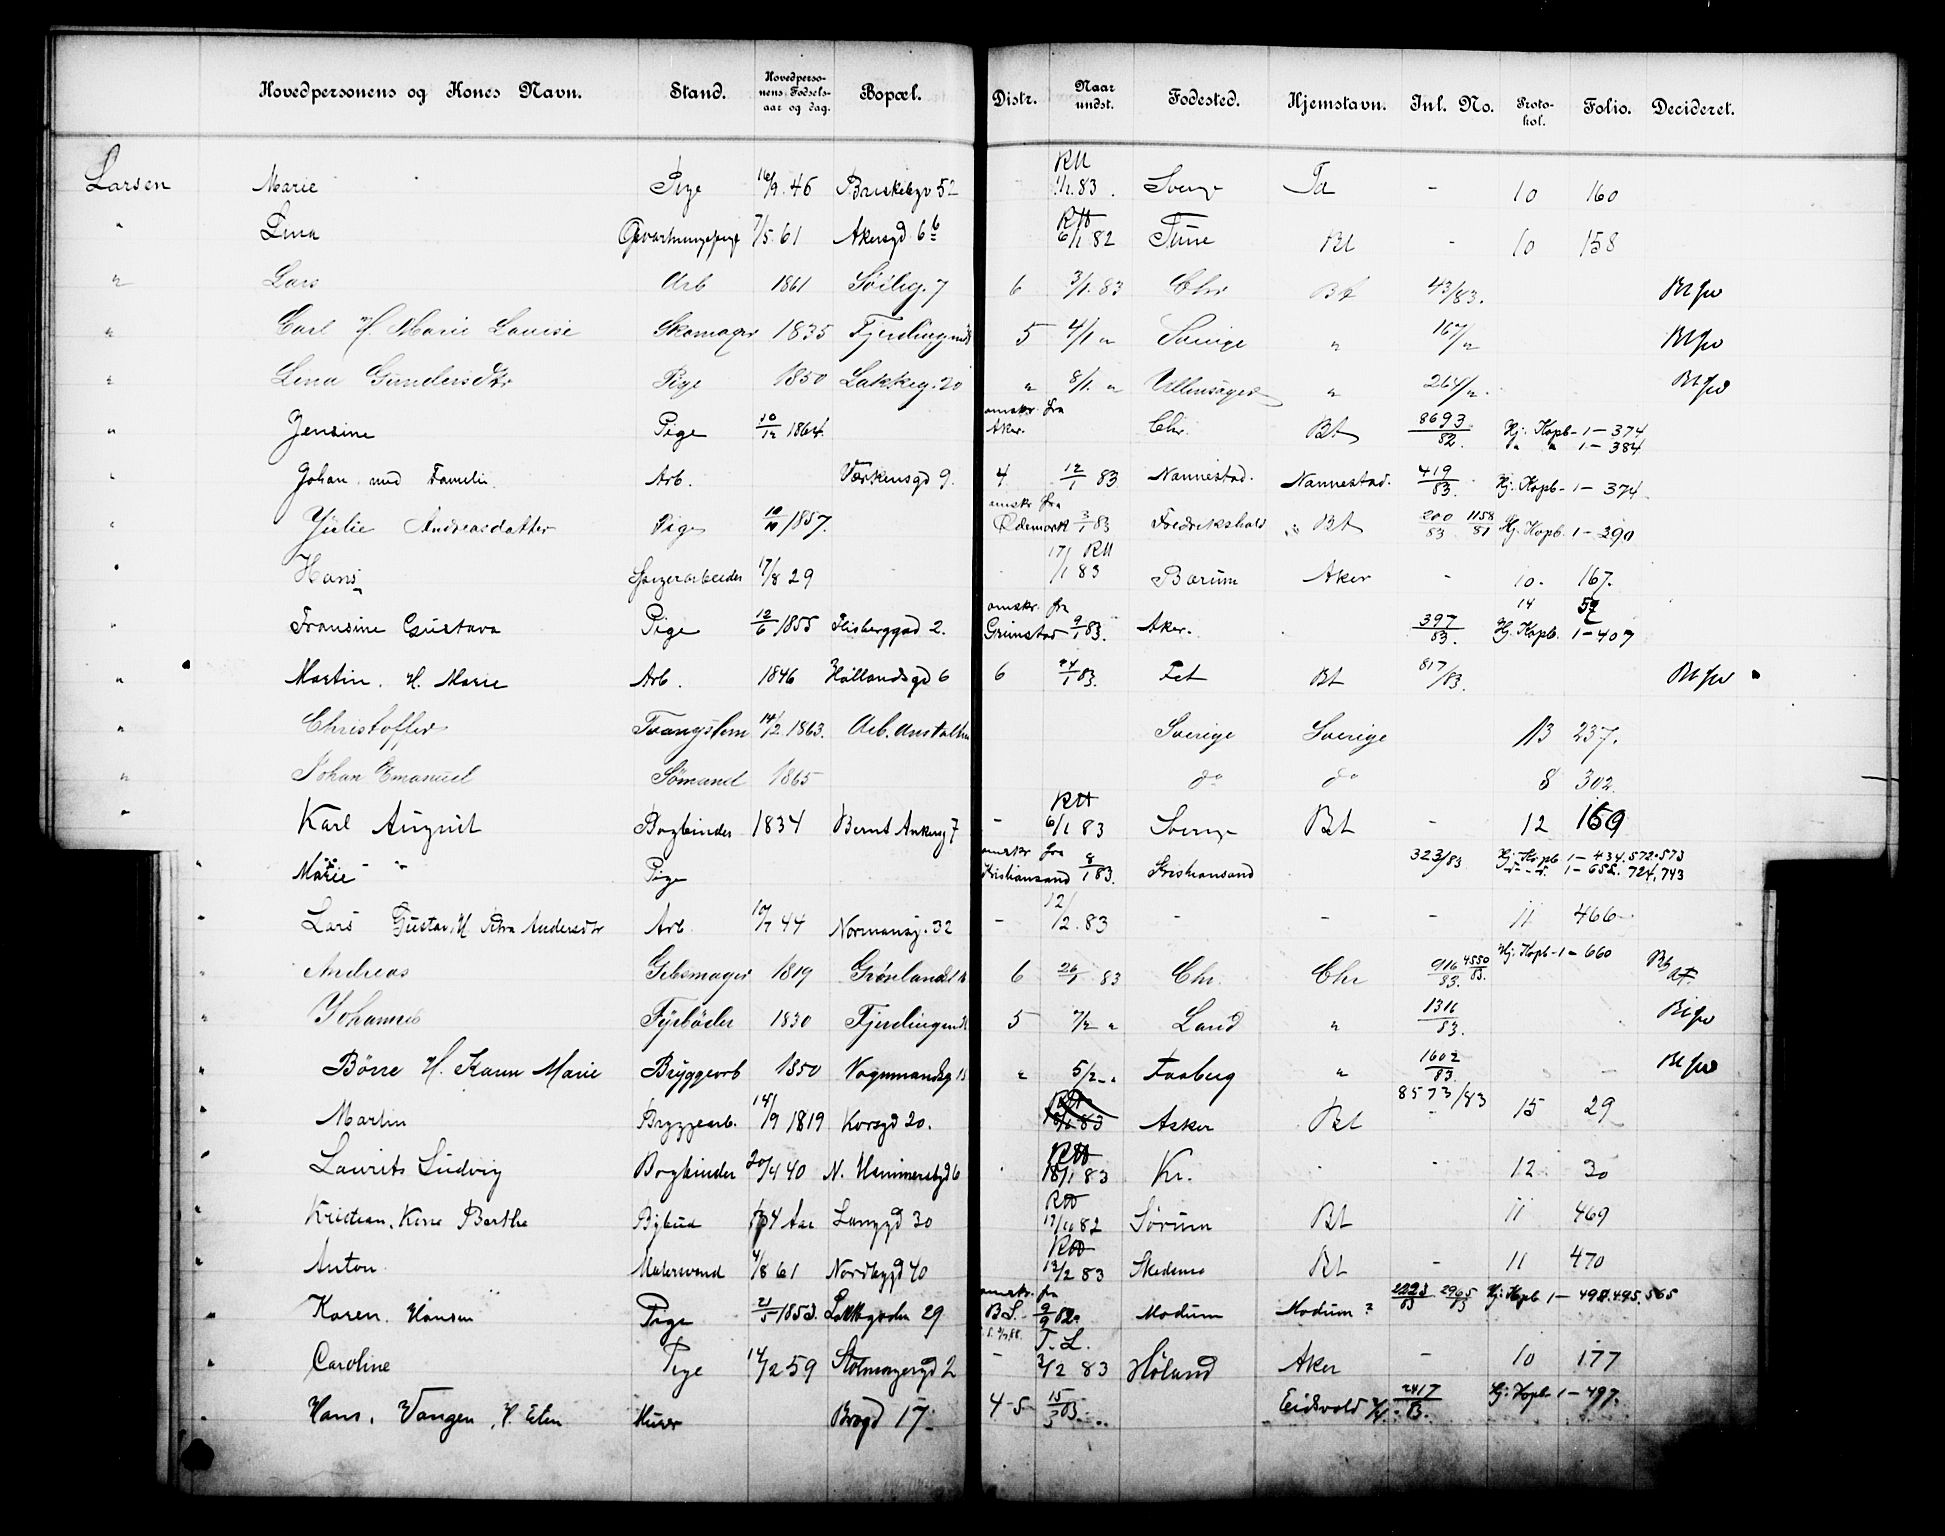 Hovedpersonens og Kones Navn. Stand. Hovedperso-nens Fødsels-aar og dag. Bopæl. Distr. Naar undst. Fødested. Hjemstavn. Inl. No. Proto-kol. Folio. Decideret.
Larsen Marie Pige 16/9 46 Briskebyv 52 RU 83 Sverige - 10 160
" Lina Opvartningspige 7/5 61 Akersgd 6b 6/1 82 Tune Bt - 10 158
" Lars Arb 1861 6 3/1 83 Chr Bt 43/83.
" Carl H. Marie Louise Skomager 1835 5 4/1 " Sverige " 167/"
" Lina Gundersdtr Pige 1850 Lakkeg. 20 " 8/1 " Ullensager " 264/"
" Jensine Pige 10/12 1864. omskr. fra Aker. Chr. Bt 8693/82. Hj. Kopb. 1 - 374
" " 1 - 384
" Johan med Familie Arb. Verkensgd 9. 4 12/1 83 Nannestad. Nannestad. 419/83. Hj. Kopb. 1 - 374.
" Julie Andreasdatter Pige 10/10 1857. omskr. fra Rdemark 3/1 83 Fredrikshald Bt 200/83 1158/81 Hj. Kopb. 1 - 390
" Hans 17/8 29 17/1 83 RU Bærum Aker - 10 167.
" Fransine Gustava Pige 12/6 1855 Flisberggad 2. omskr. fra Grimstad 9/1 83. Aker. 397/83. 14 57 Hj. Kopb. 1 - 407
" Martin. H. Marie Arb. 1846 Hollandsgd 6 6 24/1 83. Fet Bt 817/83.
" Christoffer Tvangslem 14/2 1863. Arb. Anstalten Sverige Sverige 13 237.
" Johan Emanuel Sømand 1865 do do 8 302.
" Karl August Bogbinder 1834 Bernt Ankersg 7 - 6/1 83 Sverige Bt - 12 169
" Marie - " Pige omskr fra Kristiansand 8/1 83. Kristiansand 323/83 Hj. Kopb. 1 - 434. 572. 573
1 - 652. 724, 743
" Lars Gustav, H. Petra Andersdtr Arb. 10/7 44 Normansg. 32 - 12/2 83 - - - 11 466
" Andreas Gibsmager 1819 6 26/1 83 Chr. Chr 916/83. 4550/83. Hj. Kopb. 1 - 660
" Johannes Fyrbøder 1830 5 7/2 " Land " 1316/83.
" Børre H. Karen Marie Bryggearb 1850 Vognmandsg 15 " 5/2 " Faaberg " 1602/83.
" Martin Bryggearb. 14/9 1819 Korsgd 20. 83 Asker Bt 8573/83 15 29
" Laurits Ludvig Bogbinder 20/4 40 N. Hammersbgd 6 18/1 83 Kr. 12 30
" Kristian, Kone Berthe Bybud 34 Aar Langgd 30 82 Sørum Bt 11 469
" Anton Malersvend 4/8 61 Nordbygd 40 12/2 83 Skedsmo Bt - 11 470
" Karen Hansen Pige 21/5 1853. Lakkegaden 29 omskr. fra 9/9 82. Modum Modum ? 2965/83 Hj. Kopb. 1 - 494. 495. 565
" Caroline Pige 14/2 59 Stolmagergd 2 - T. L. 3/2 83 Høland Aker - 10 177
" Hans, Vangen, H. Elen Murer Brogd 17 4-5 15/3 83. Eidsvold 2417/83. Hj. Kopb. 1 - 497.